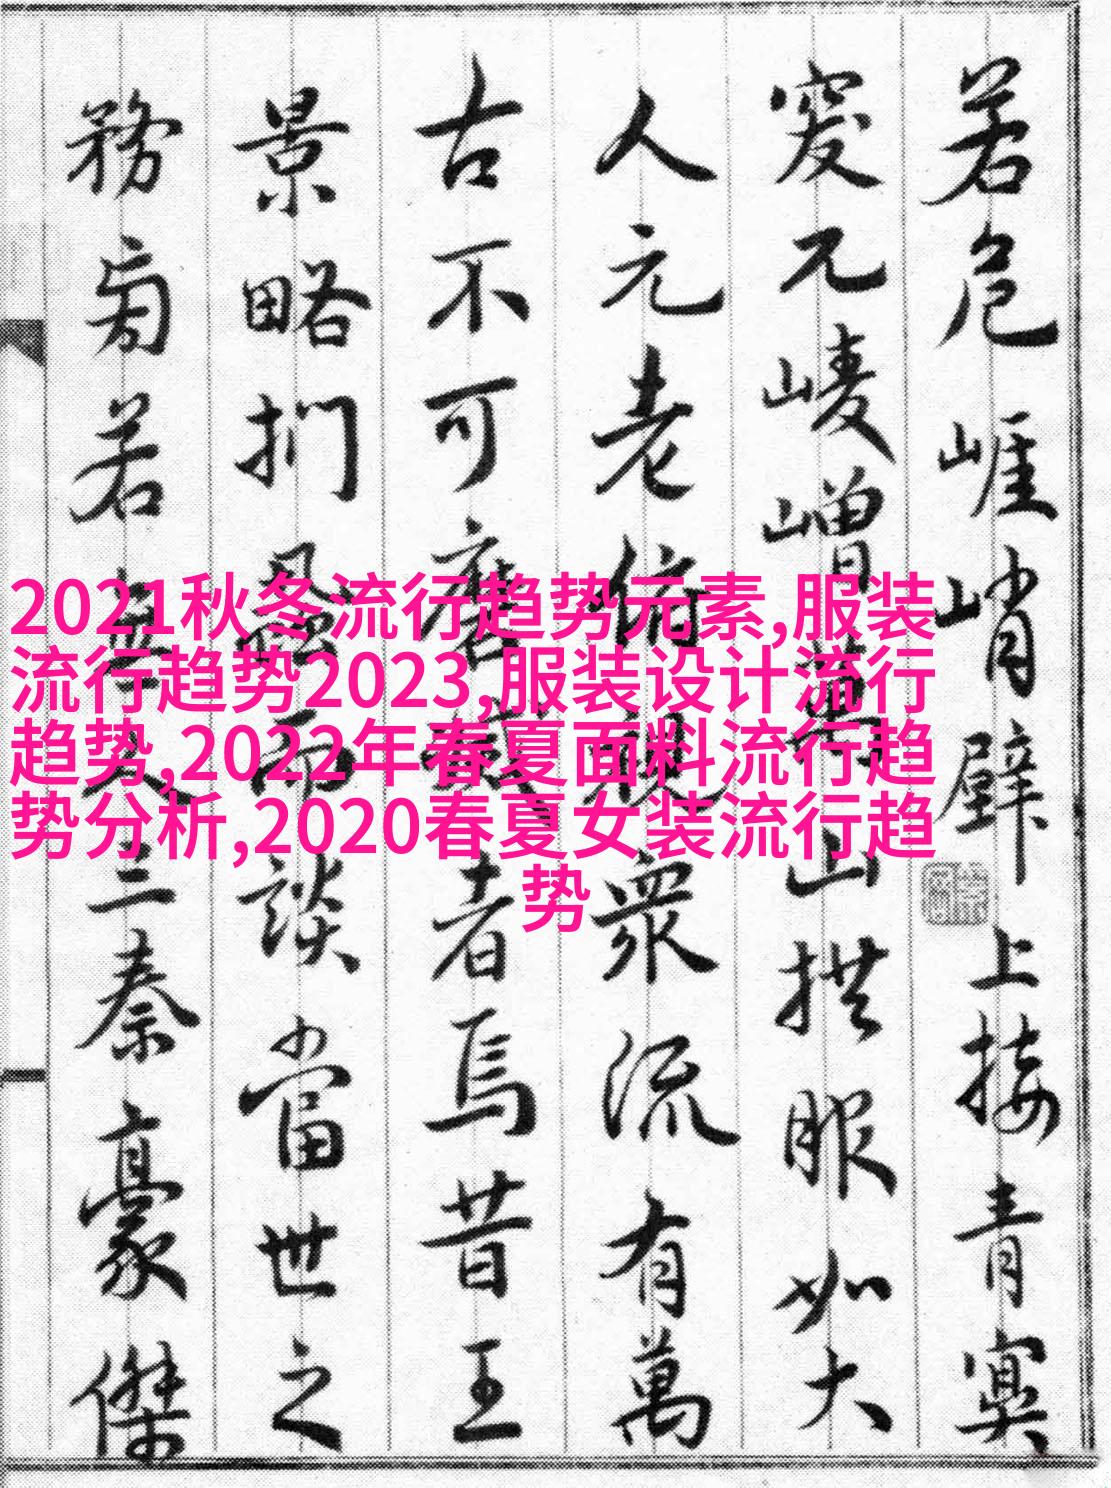 若危崕峭壁上接青冥
突兀崚嶒羣山拱服如大
人元老俯視眾流有萬
古不可磨滅者焉昔王
景略捫蝨而談當世之
務旁若無人三秦豪傑
2021秋冬流行趋势元素,服装
流行趋势2023,服装设计流行
趋势,2022年春夏面料流行趋
势分析,2020春夏女装流行趋
势